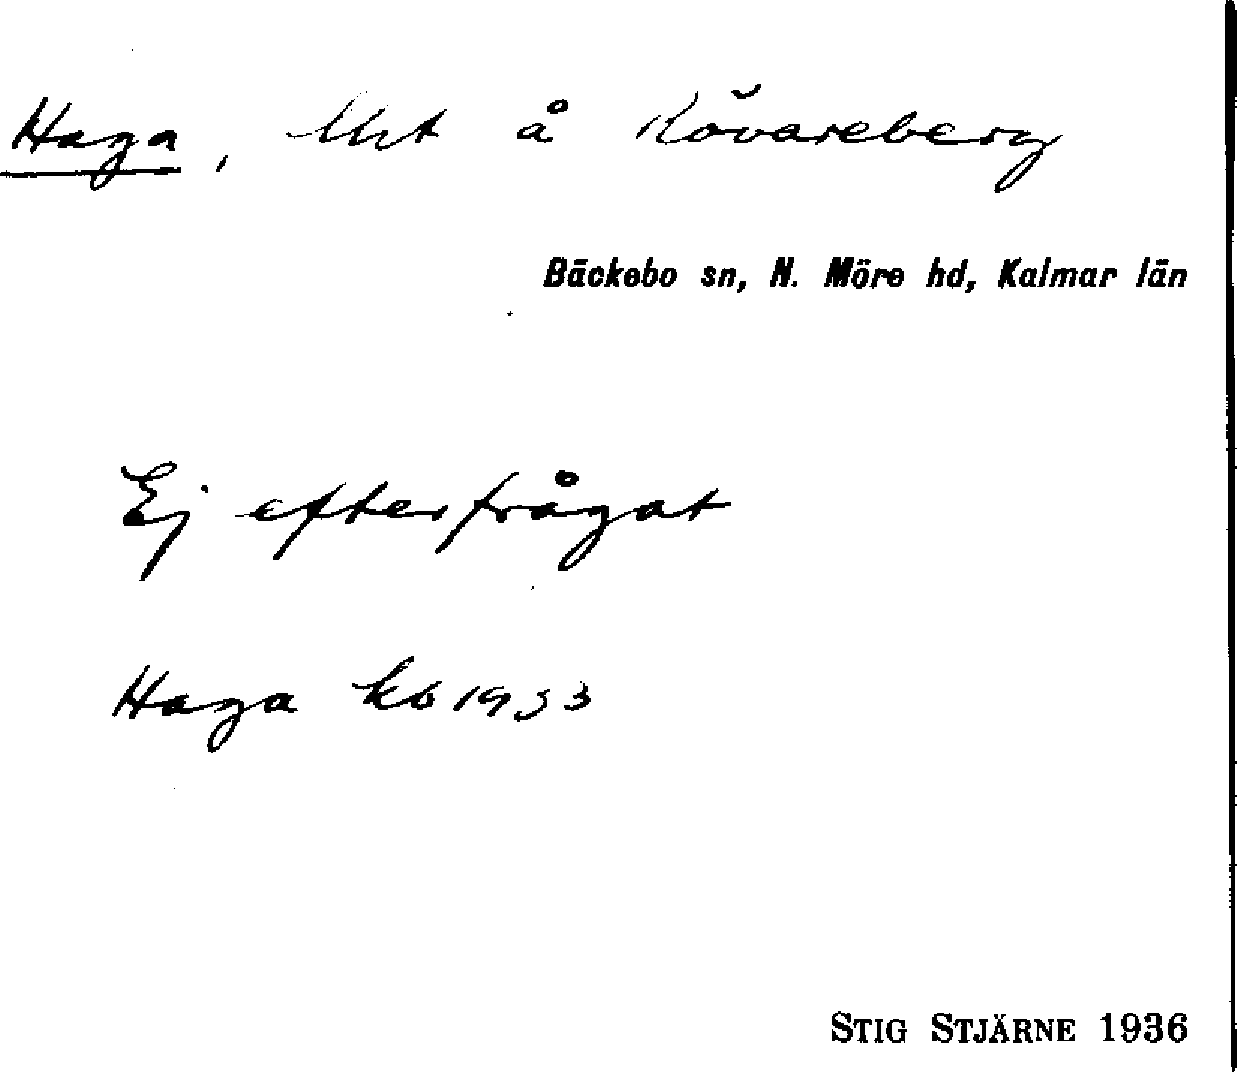 Haga, lht å Rövareberg
Bäckebo sn, N. Möre hd, Kalmar län
Ej efterfrågat
Haga kb 1933
STIG STJÄRNE 1936